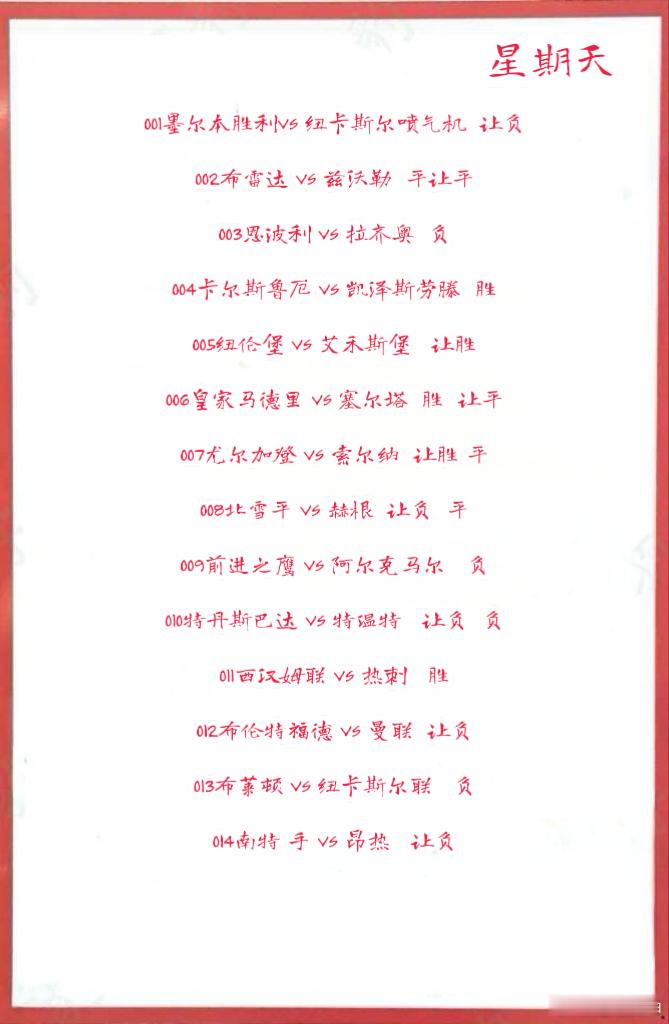 星期天
001墨尔本胜利VS 纽卡斯尔喷气机 让负
002布雷达 VS 兹沃勒 平让平
003恩波利 VS 拉齐奥 负
004卡尔斯鲁厄 VS 凯泽斯劳滕 胜
005纽伦堡 VS 艾禾斯堡 让胜
006皇家马德里 VS 塞尔塔 胜 让平
007尤尔加登 VS 索尔纳 让胜 平
008北雪平 VS 赫根 让负 平
009前进之鹰 VS 阿尔克马尔 负
010特丹斯巴达 VS 特温特 让负 负
011西汉姆联 VS 热刺 胜
012布伦特福德 VS 曼联 让负
013布莱顿 VS 纽卡斯尔联 负
014南特 手 VS 昂热 让负